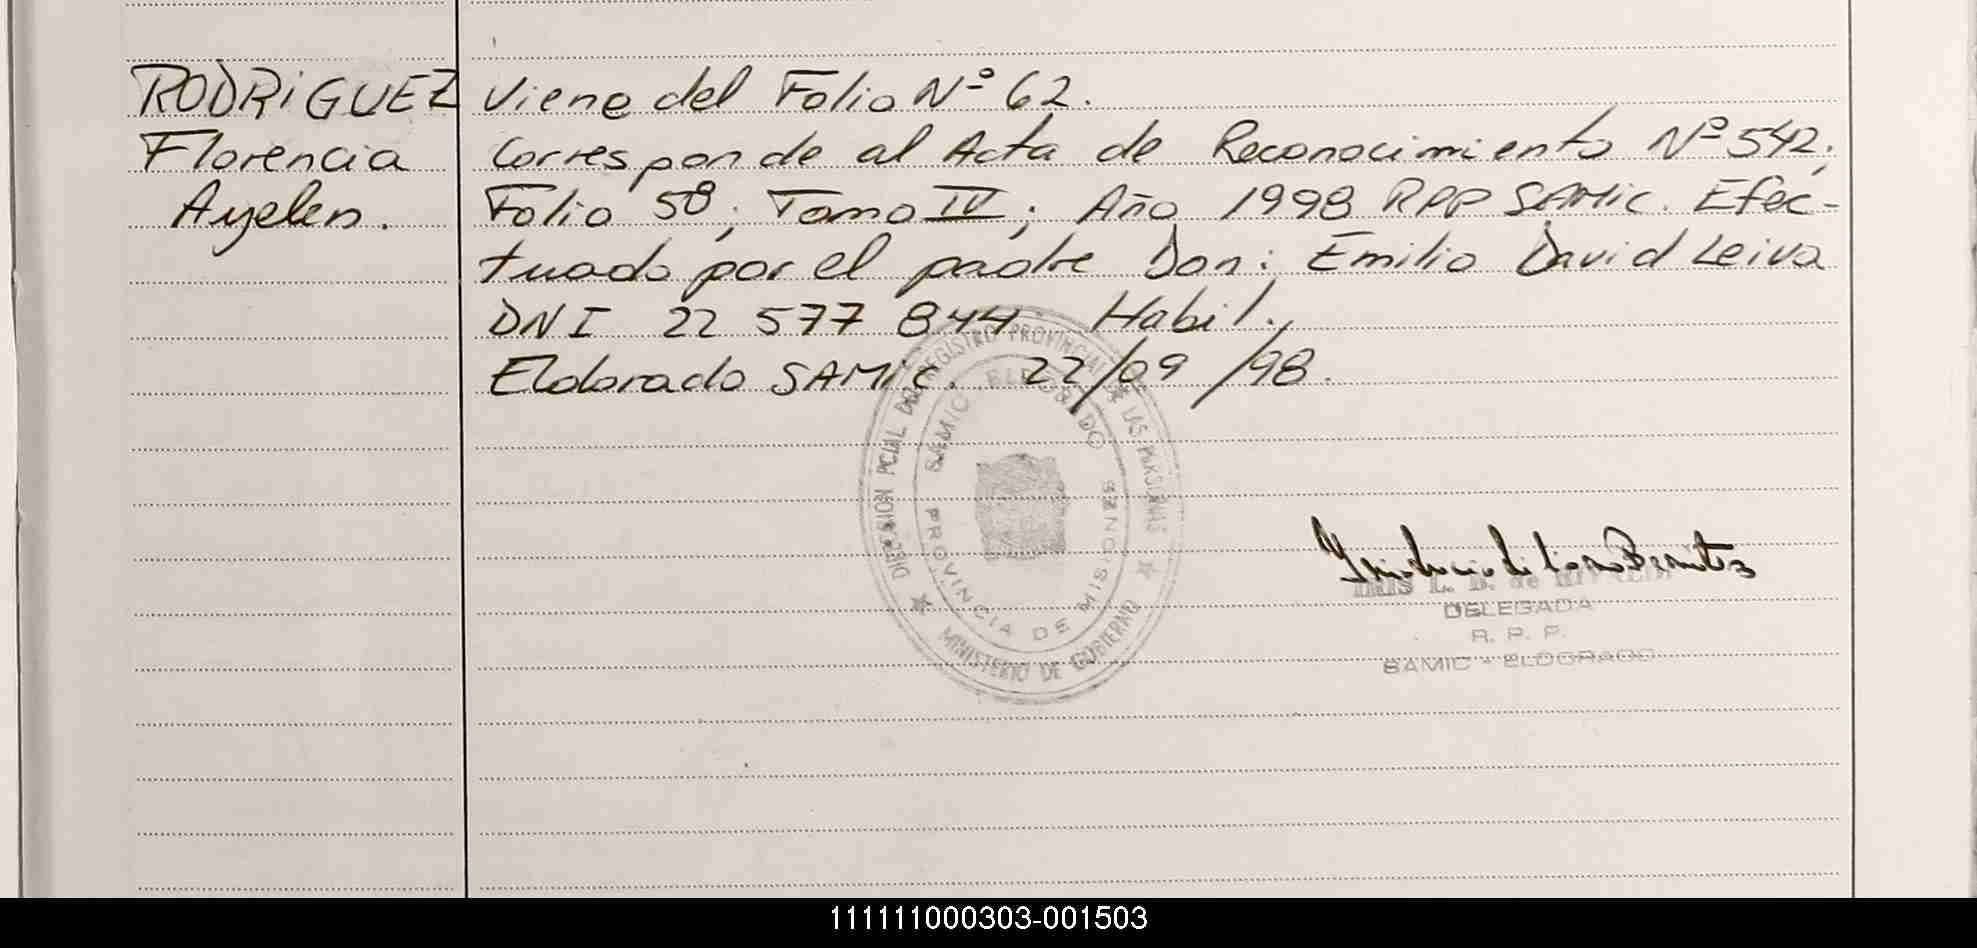 RODRIGUEZ
Florencia
Ayelen.
Viene del Folio Nº 62.
Corresponde al Acta de Reconocimiento Nº 542,
Folio 58, Tomo IV, Año 1998 RPP SAMIC. Efec-
tuado por el padre Don: Emilio David Leiva
DNI 22 577 844 Habil.
Eldorado SAMIC. 22/09/98.
REGISTRO PROVINCIAL DE LAS PERSONAS
MINISTERIO DE GOBIERNO
SAMIC ELDORADO
PROVINCIA DE MISIONES
IRIS L. B. de
DELEGADA
R. P. P.
SAMIC - ELDORADO
111111000303-001503